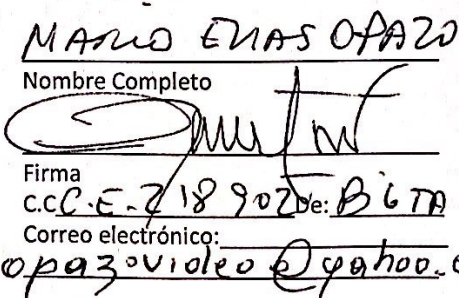 MARIO ELIAS OPAZO
Nombre Completo
Firma
C.C C.E-218902 De: BGTA
Correo electrónico:
opazovideo@yahoo.